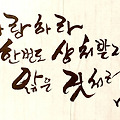 사랑하라
한번도 상처받지
않은 것처럼